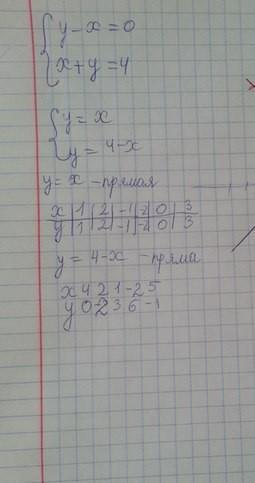 y-x=0
x+y=4
y=x
y=4-x
y=x -прямая
x|1|2|-1|-2|0|3
y|1|2|-1|-2|0|3
y=4-x -пряма
x 4 2 1 -2 5
y 0 2 3 6 -1